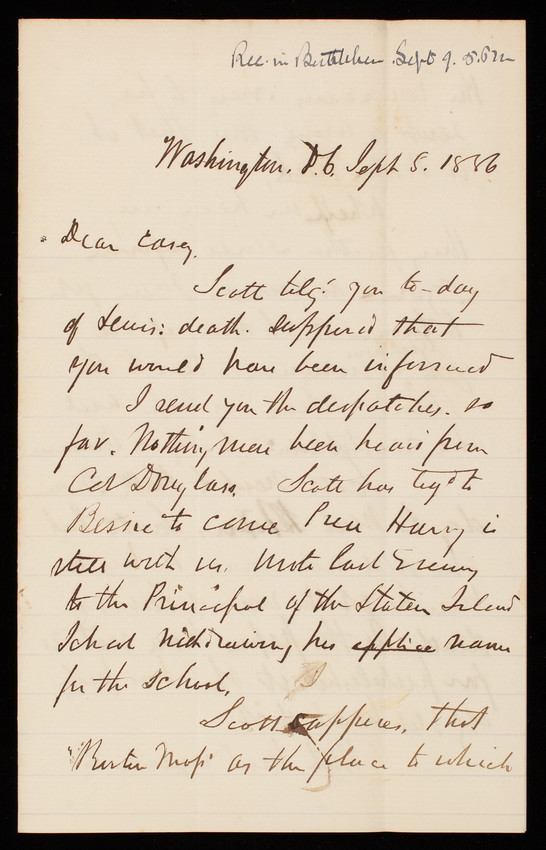 Rec. in Sept 9. 5. P.m
Washington. D.C. Sept 8. 1886
Dear Casey.
Scott telg.' you to-day
of Lewis: death. Suppered that
you would have been informed
I send you the despatches. so
far. Nothing more been heard from
Col Douglass. Scott has tegd to
Bessie to come Harry is
still with us. Wrote last Evening
to the Principal of the Staten Island
School withdrawing his applica name
for the School.
Scott suppires. that
"Boston Mass" as the place to which